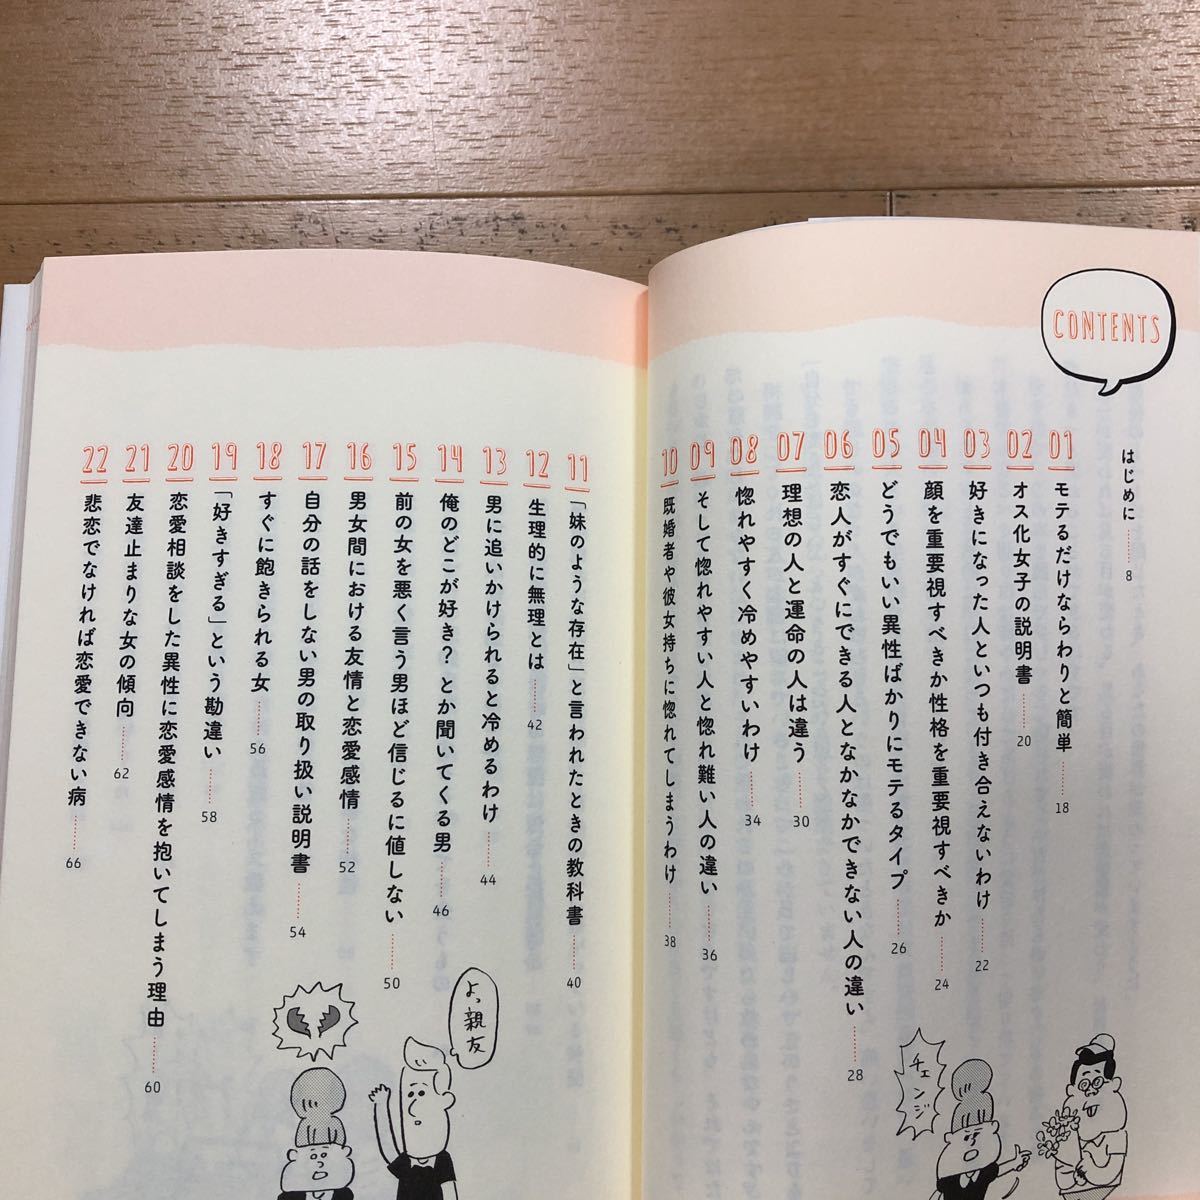 CONTENTS
はじめに……8
01 モテるだけならわりと簡単……18
02 オス化女子の説明書……20
03 好きになった人といつも付き合えないわけ……22
04 顔を重要視すべきか性格を重要視すべきか……24
05 どうでもいい異性ばかりにモテるタイプ……26
06 恋人がすぐにできる人となかなかできない人の違い……28
07 理想の人と運命の人は違う……30
08 惚れやすく冷めやすいわけ……34
09 そして惚れやすい人と惚れ難い人の違い……36
10 既婚者や彼女持ちに惚れてしまうわけ……38
チェンジ
11 「妹のような存在」と言われたときの教科書……40
12 生理的に無理とは……42
13 男に追いかけられると冷めるわけ……44
14 俺のどこが好き?とか聞いてくる男……46
15 前の女を悪く言う男ほど信じるに値しない……50
16 男女間における友情と恋愛感情……52
17 自分の話をしない男の取り扱い説明書……54
18 すぐに飽きられる女……56
19 「好きすぎる」という勘違い……58
20 恋愛相談をした異性に恋愛感情を抱いてしまう理由……60
21 友達止まりな女の傾向……62
22 悲恋でなければ恋愛できない病……66
よっ親友